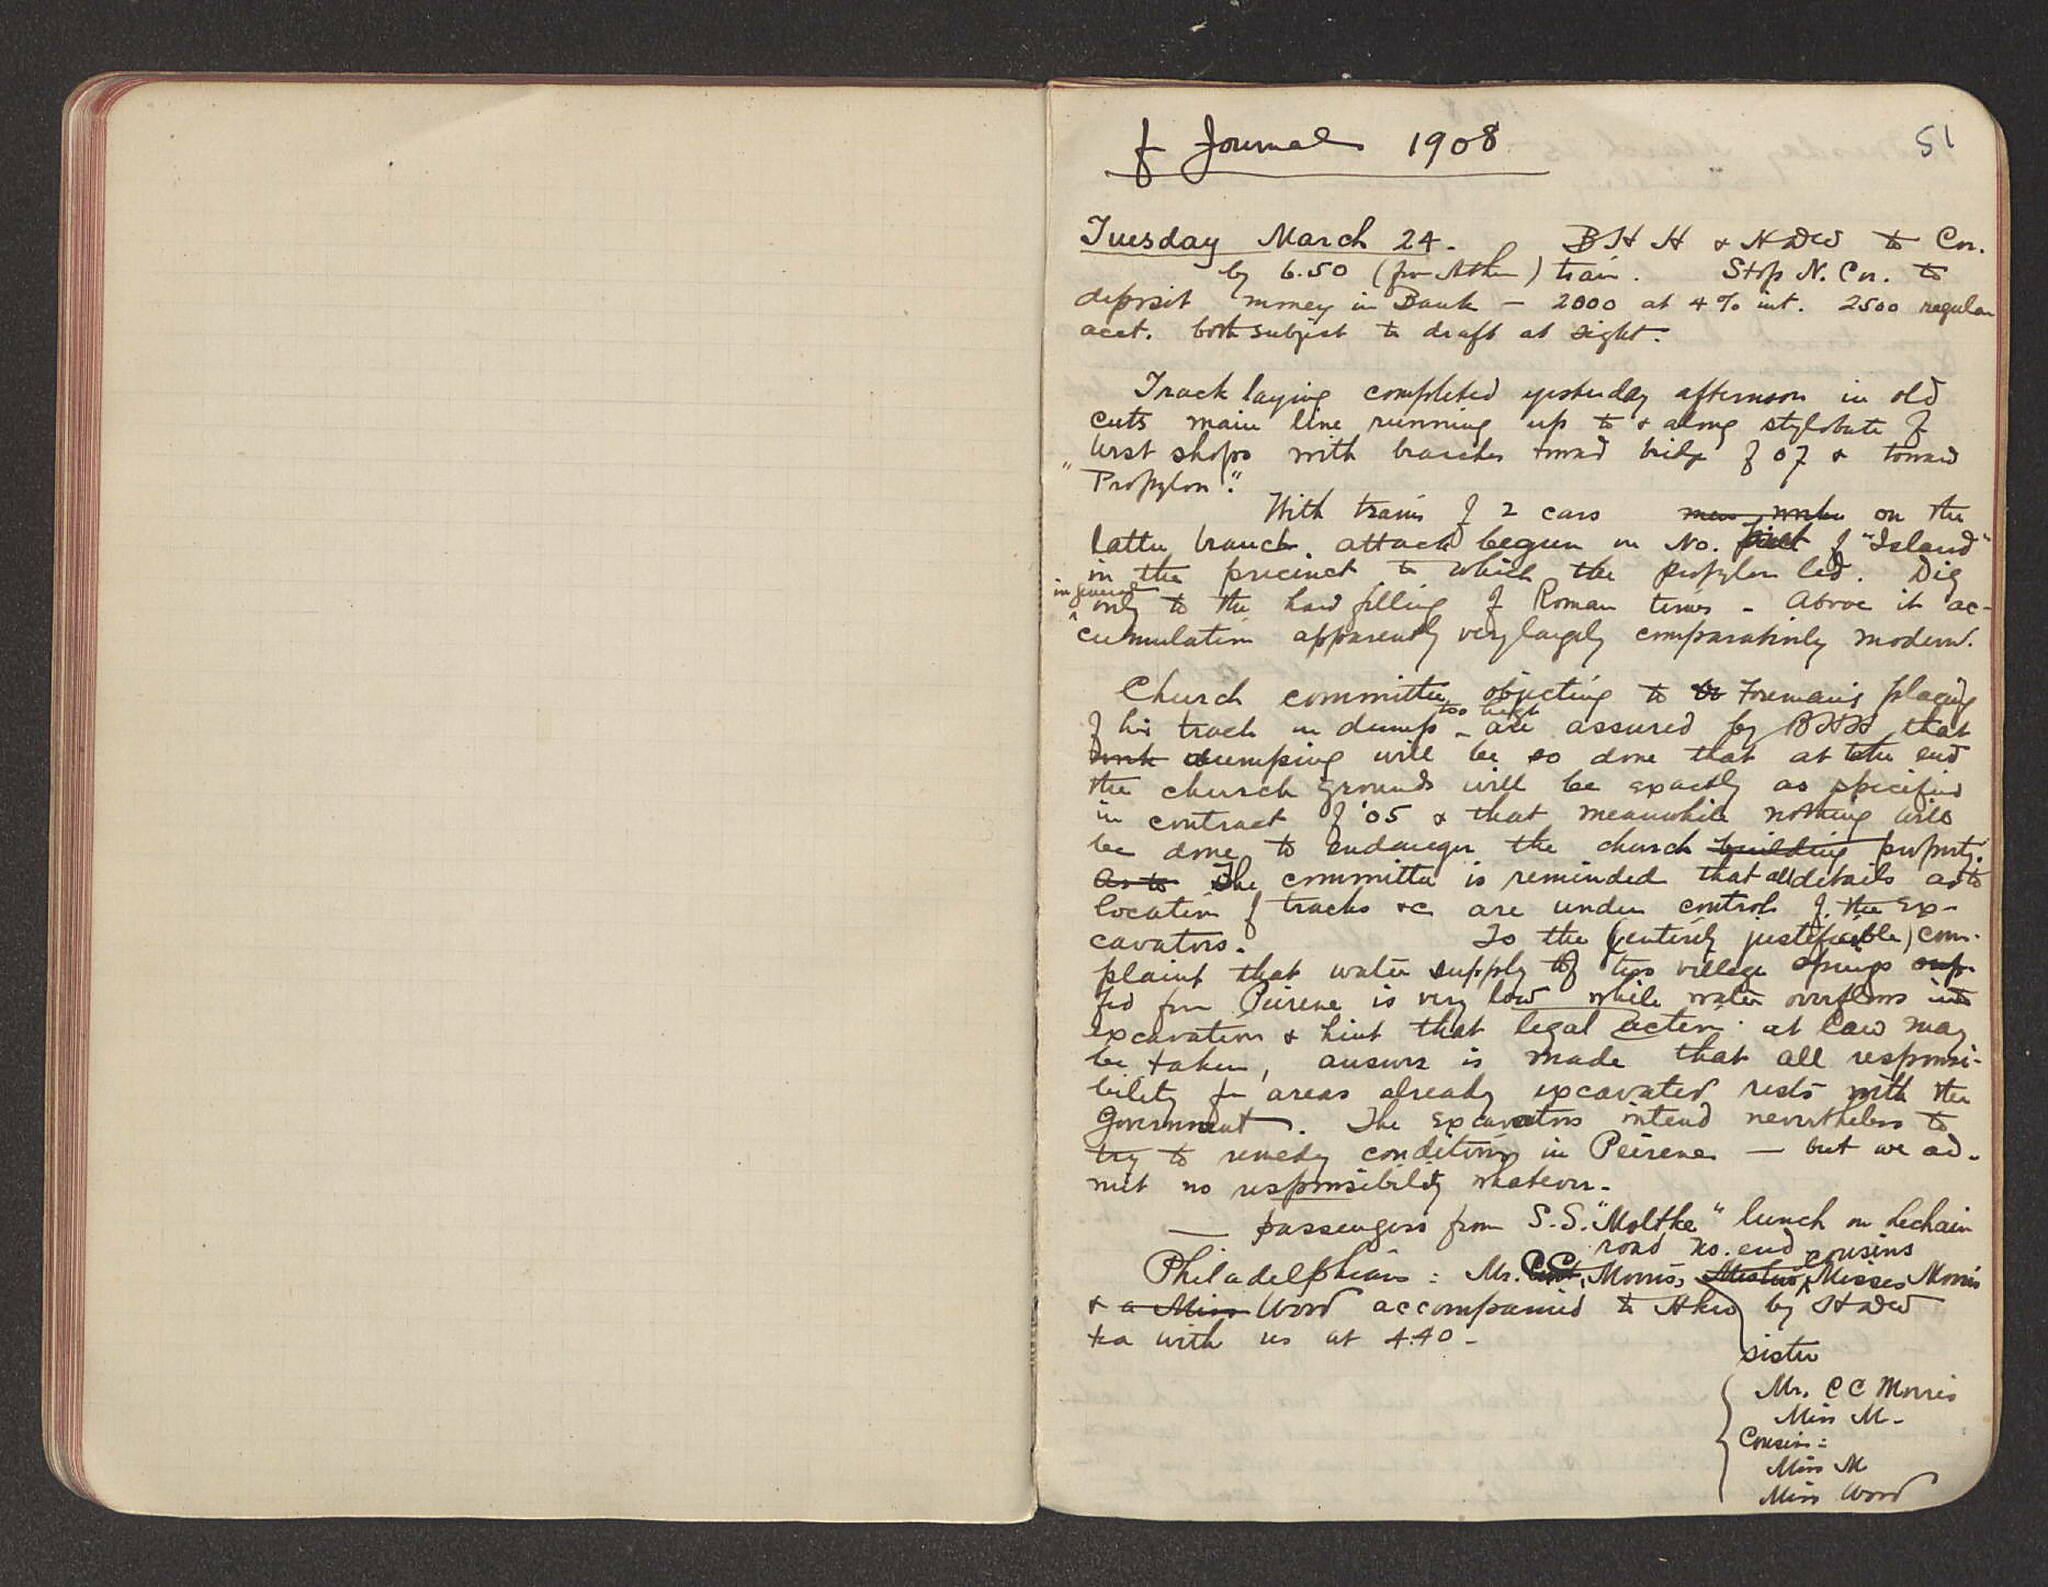 f Journal 1908
51
Tuesday March 24. BHH & HDW to Cor.
by 6.50 (from Athens) train. Stop N. Cor. to
deposit money in Bank – 2000 at 4% int. 2500 regular
acct. both subject to draft at sight.
Track laying completed yesterday afternoon in old
cuts main line running up to & along stylobate of
west shops with branches toward bridge of 07 & toward
"Propylon".
With trains of 2 cars on the
latter branch. attack begun on No. of "Island"
in the precinct to which the propylon led. Dig
in general
only to the hard filling of Roman times – Above it ac-
cumulation apparently very largely comparatively modern.
Church committee objecting to Foreman's placing
too high
of his track on dump – are assured by BHH that
dumping will be so done that at the end
the church grounds will be exactly as specified
in contract of '05 & that meanwhile nothing will
be done to endanger the church building property.
As to The committee is reminded that all details as to
location of tracks &c are under control of the ex-
cavators. To the (entirely justifiable) com-
plaint that water supply of two village springs sup-
fed from Peirene is very low while water overflows into
excavation & hint that legal action at law may
be taken, answer is made that all responsi-
bility for areas already excavated rests with the
Government. The excavators intend nevertheless to
try to remedy conditions in Peirene – but we ad-
mit no responsibility whatever.
— passengers from S.S. "Moltke" lunch on Lechaion
road no. end
cousins
Philadelphians: Mr. CC Morris, Misses Morris
& a Miss Word accompanied to Akro by HDW
tea with us at 4.40 –
sister
Mr. CC Morris
Miss M.
Cousin:
Miss M
Miss Word